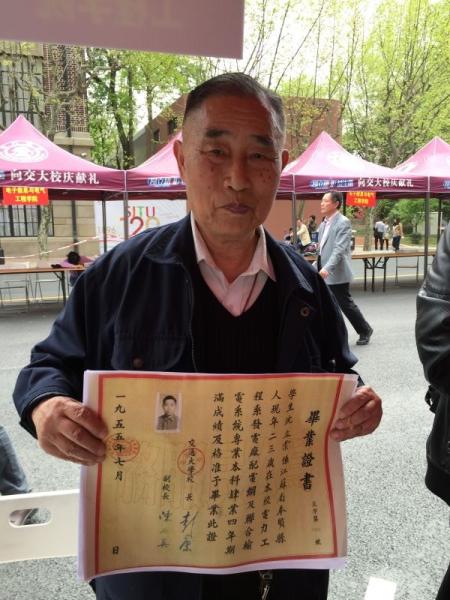 工程学院
向交大校庆献礼
电子信息与电气
工程学院
向交大校庆献礼
电子信息与电气
工程学院
SJTU
120
畢業證書
字第 號
學生沈立 係江蘇省奉賢縣
人現年二三歲在本校電力工
程系發電廠配電網及聯合輸
電系統專業本科肄業四年期
滿成績及格准予畢業此證
交通大學校長 彭康
副校長
一九五五年七月 日